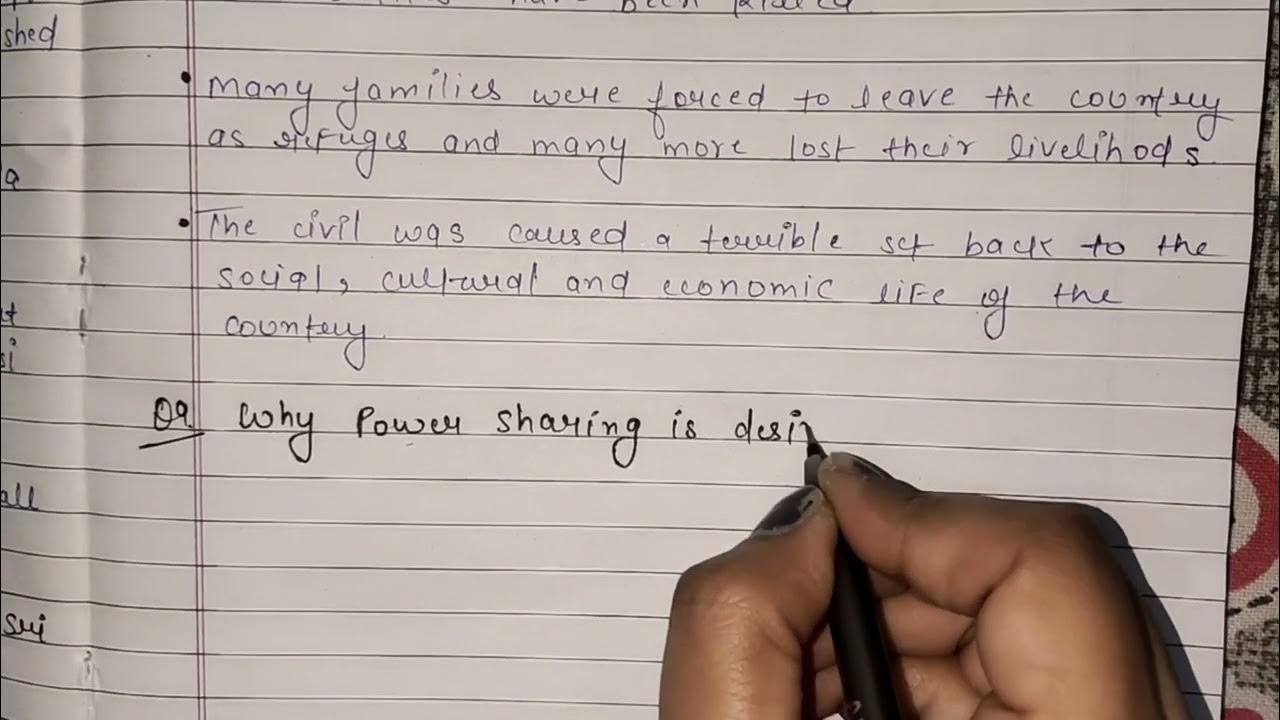 have been killed
shed
• Many families were forced to leave the country
as refuges and many more lost their livelihods.
a
• The civil was caused a terrible set back to the
social, cultural and economic life of the
country
t
si
Q9 Why Power sharing is desi
all
sri